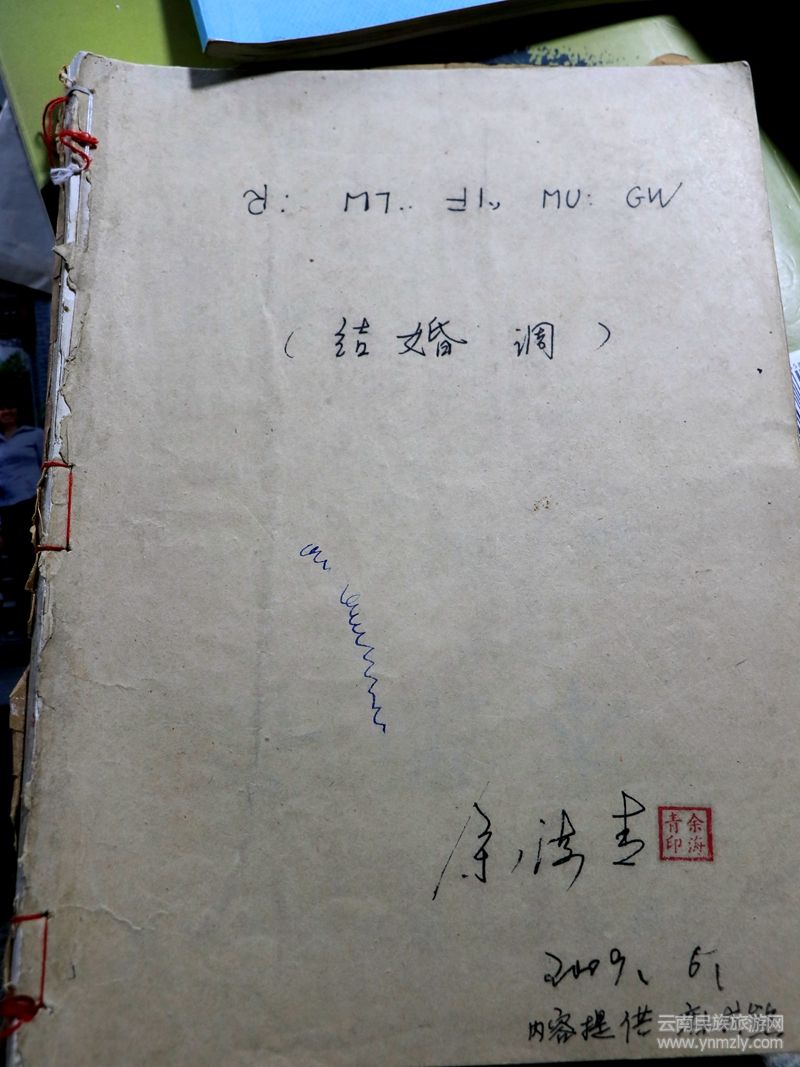 ꓤꓽ ꓟꓶꓺ ꓟꓴꓽ ꓖꓪ
（结婚调）
余海青
余海
青印
2009、6、
内容提供
云南民族旅游网
www.ynmzly.com